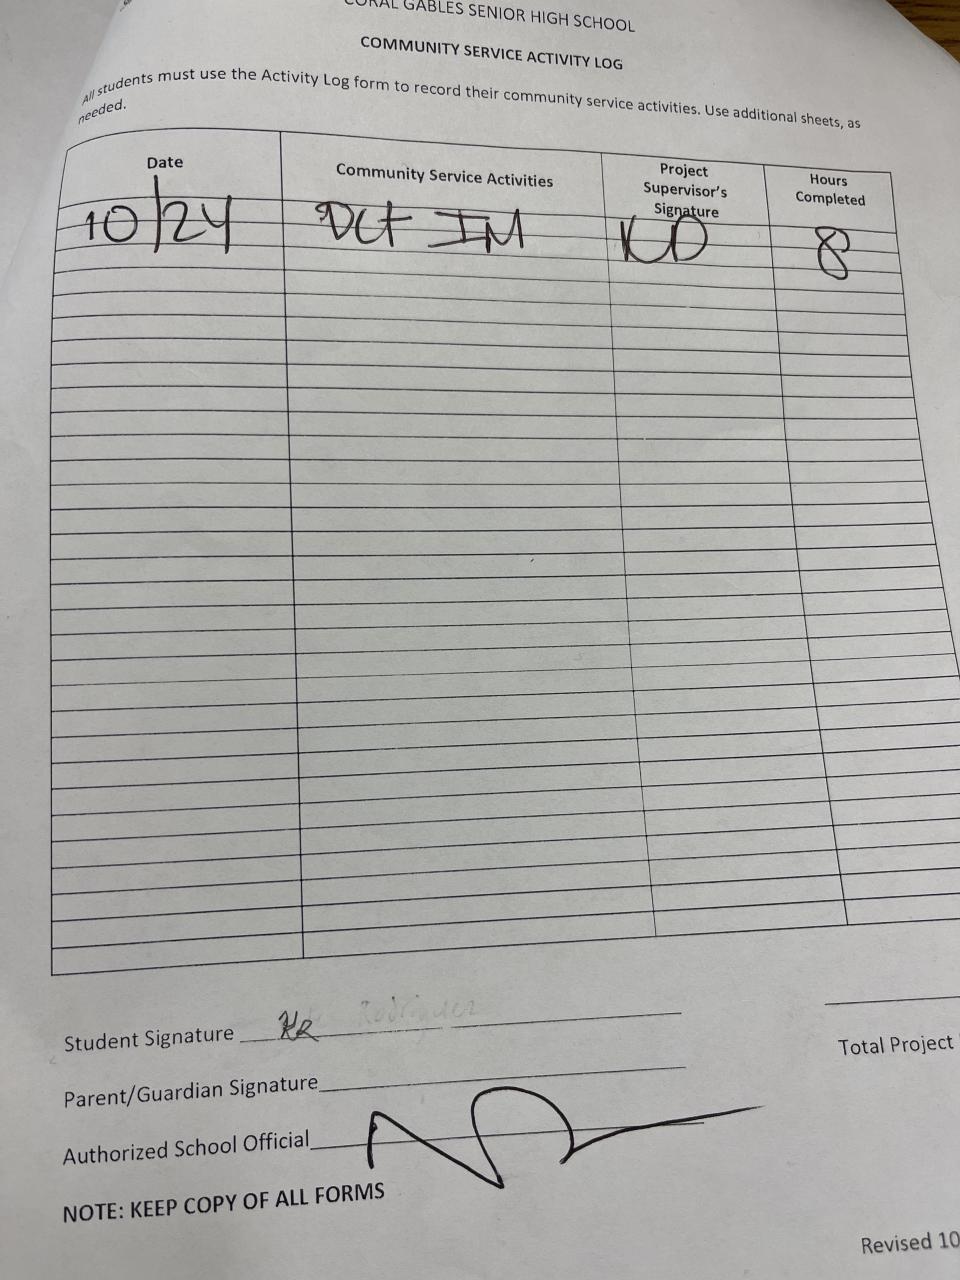 CORAL GABLES SENIOR HIGH SCHOOL
COMMUNITY SERVICE ACTIVITY LOG
All students must use the Activity Log form to record their community service activities. Use additional sheets, as
needed.
Date Community Service Activities Project Supervisor's Signature Hours Completed
10/24 DCT IM KD 8
Student Signature KR Rodriguez
Total Project
Parent/Guardian Signature
Authorized School Official
NOTE: KEEP COPY OF ALL FORMS
Revised 10